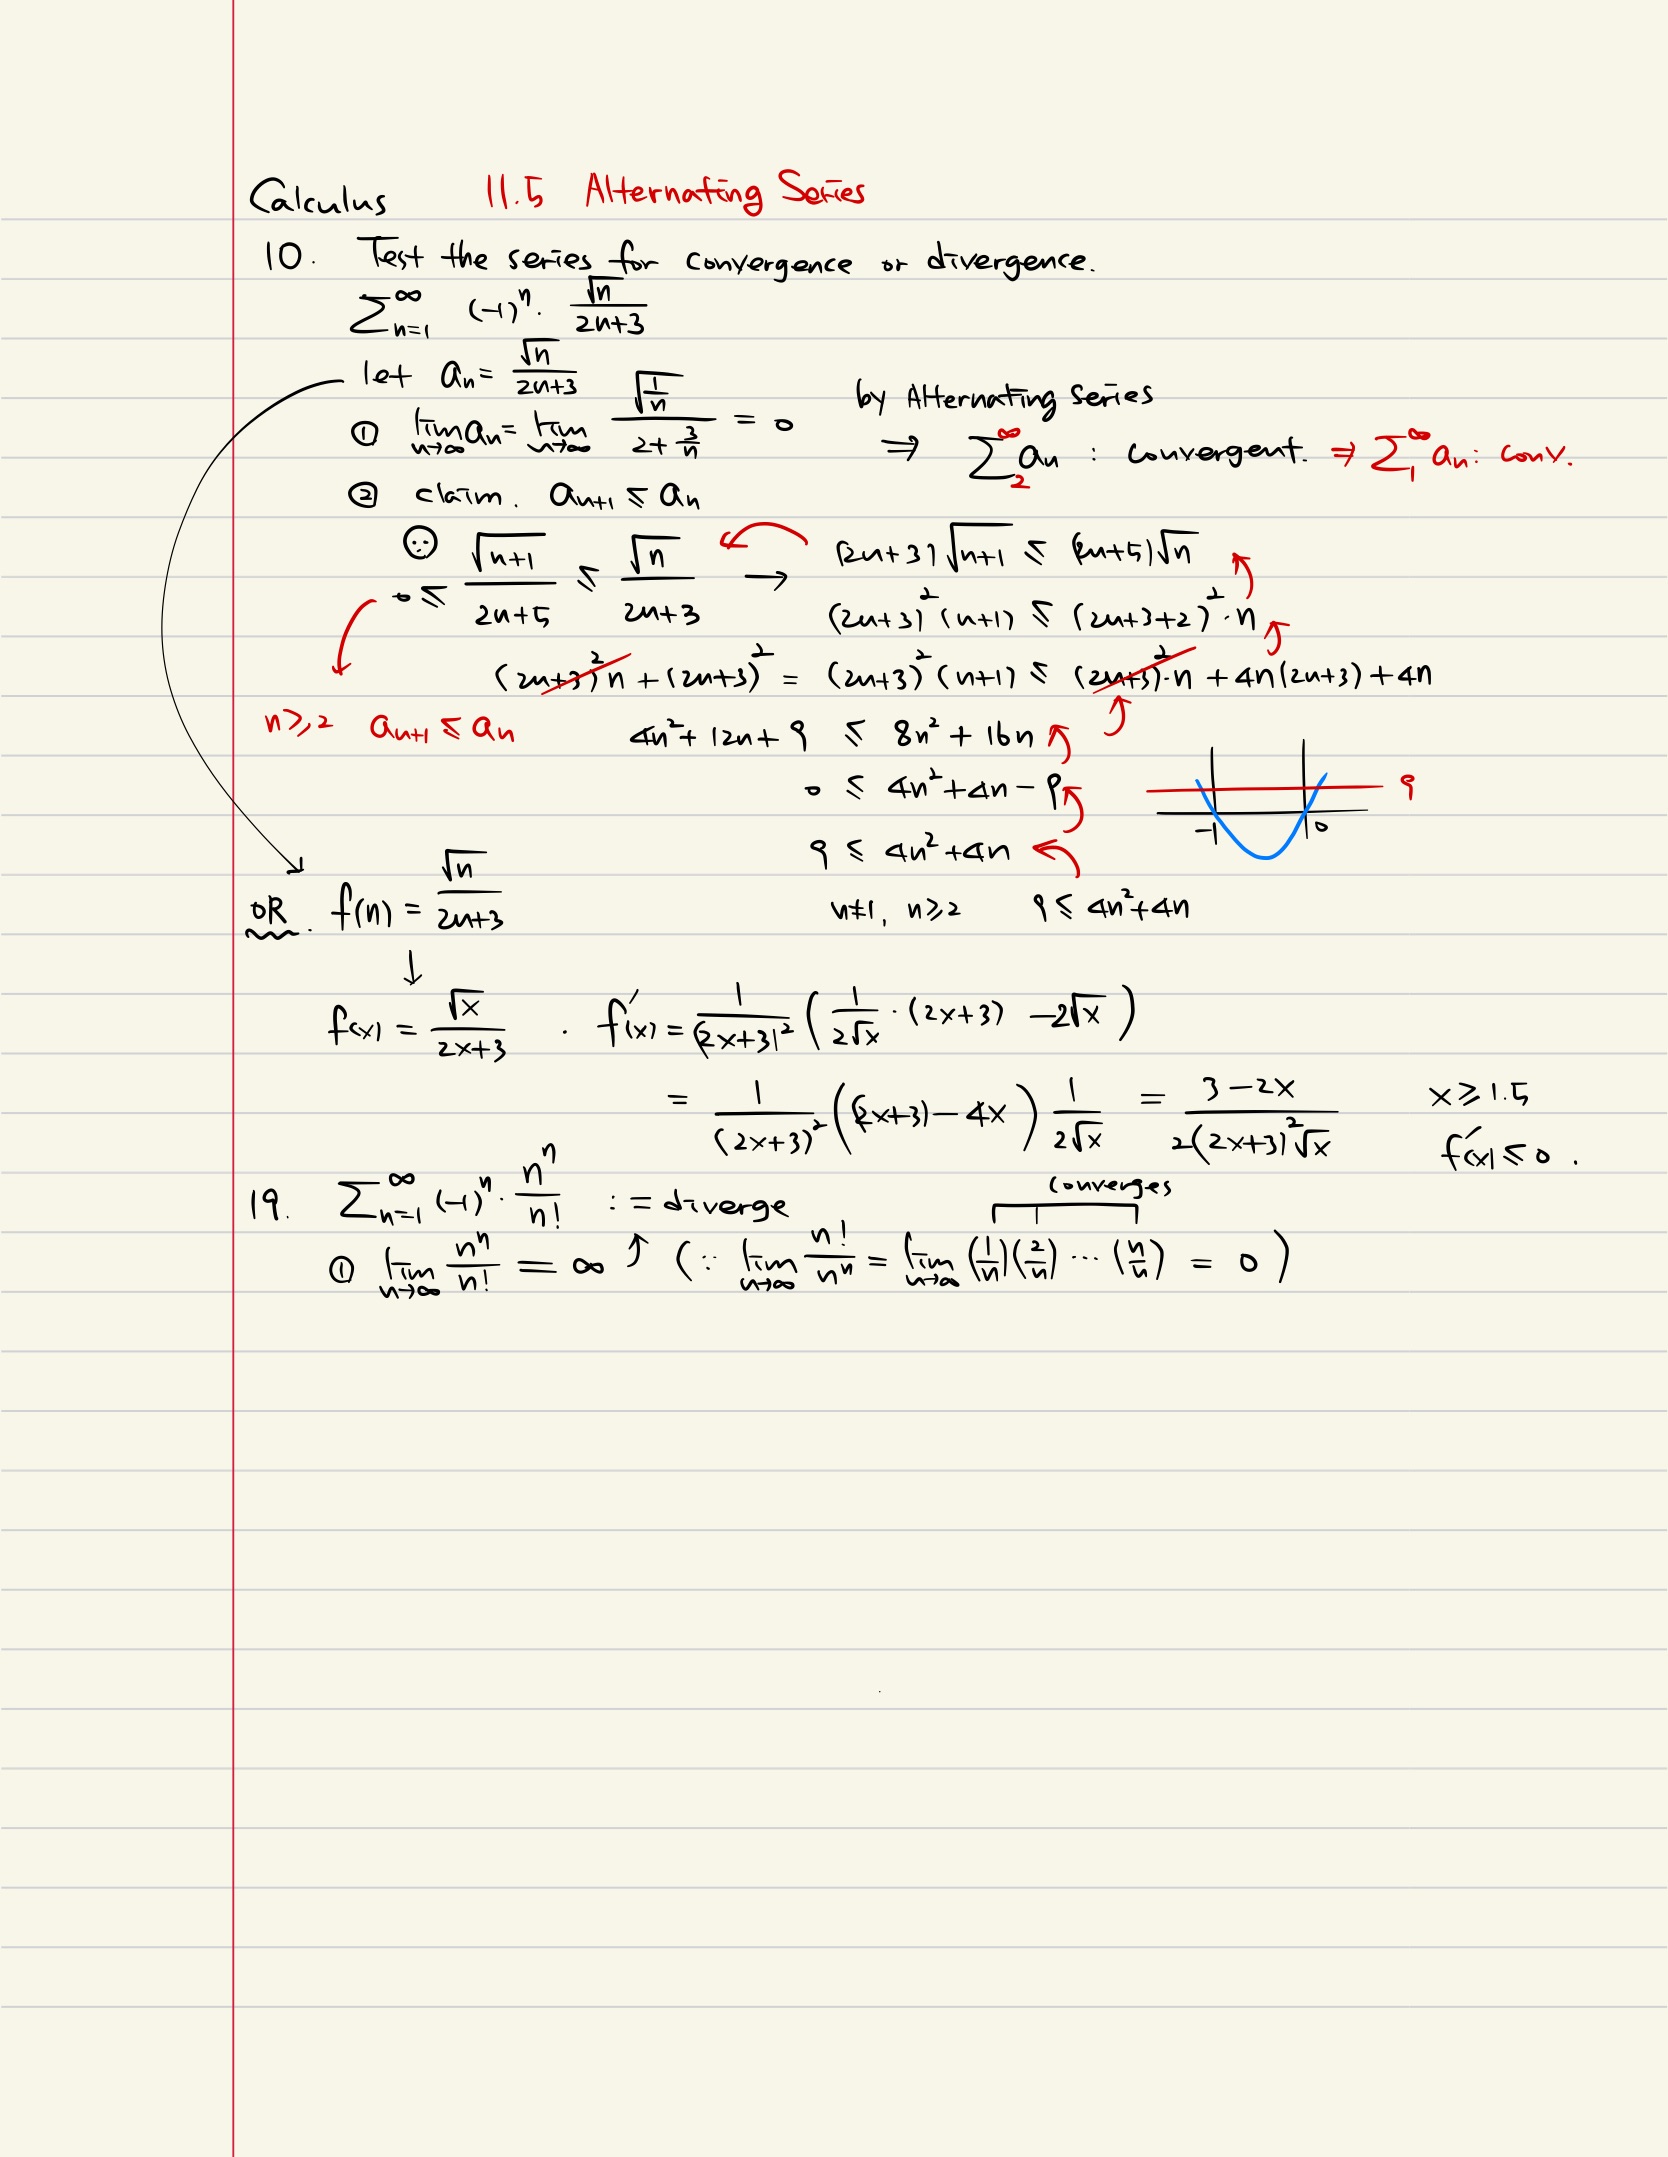 Calculus 11.5 Alternating Series
10. Test the series for convergence or divergence.
∑_{n=1}^{∞} (-1)^n · √n/(2n+3)
let a_n = √n/(2n+3)
① lim_{n→∞} a_n = lim_{n→∞} √(1/n)/(2+3/n) = 0
by Alternating series
⇒ ∑_2^∞ a_n : convergent. ⇒ ∑_1^∞ a_n : conv.
② claim. a_{n+1} ≤ a_n
0 ≤ √(n+1)/(2n+5) ≤ √n/(2n+3) → (2n+3)√(n+1) ≤ (2n+5)√n
(2n+3)^2 (n+1) ≤ (2n+3+2)^2 · n
(2n+3)^2 n + (2n+3)^2 = (2n+3)^2 (n+1) ≤ (2n+3)^2 · n + 4n(2n+3) + 4n
n ≥ 2 a_{n+1} ≤ a_n
4n^2 + 12n + 9 ≤ 8n^2 + 16n
0 ≤ 4n^2 + 4n - 9
9
-1 0
9 ≤ 4n^2 + 4n
n≠1, n≥2 9 ≤ 4n^2 + 4n
OR. f(n) = √n/(2n+3)
↓
f(x) = √x/(2x+3) . f'(x) = 1/(2x+3)^2 (1/(2√x) · (2x+3) - 2√x)
= 1/(2x+3)^2 ((2x+3) - 4x) 1/(2√x) = (3-2x)/(2(2x+3)^2 √x) x ≥ 1.5
f'(x) ≤ 0.
19. ∑_{n=1}^{∞} (-1)^n · n^n/n! := diverge
converges
① lim_{n→∞} n^n/n! = ∞ (∵ lim_{n→∞} n!/n^n = lim_{n→∞} (1/n)(2/n) ⋯ (n/n) = 0)